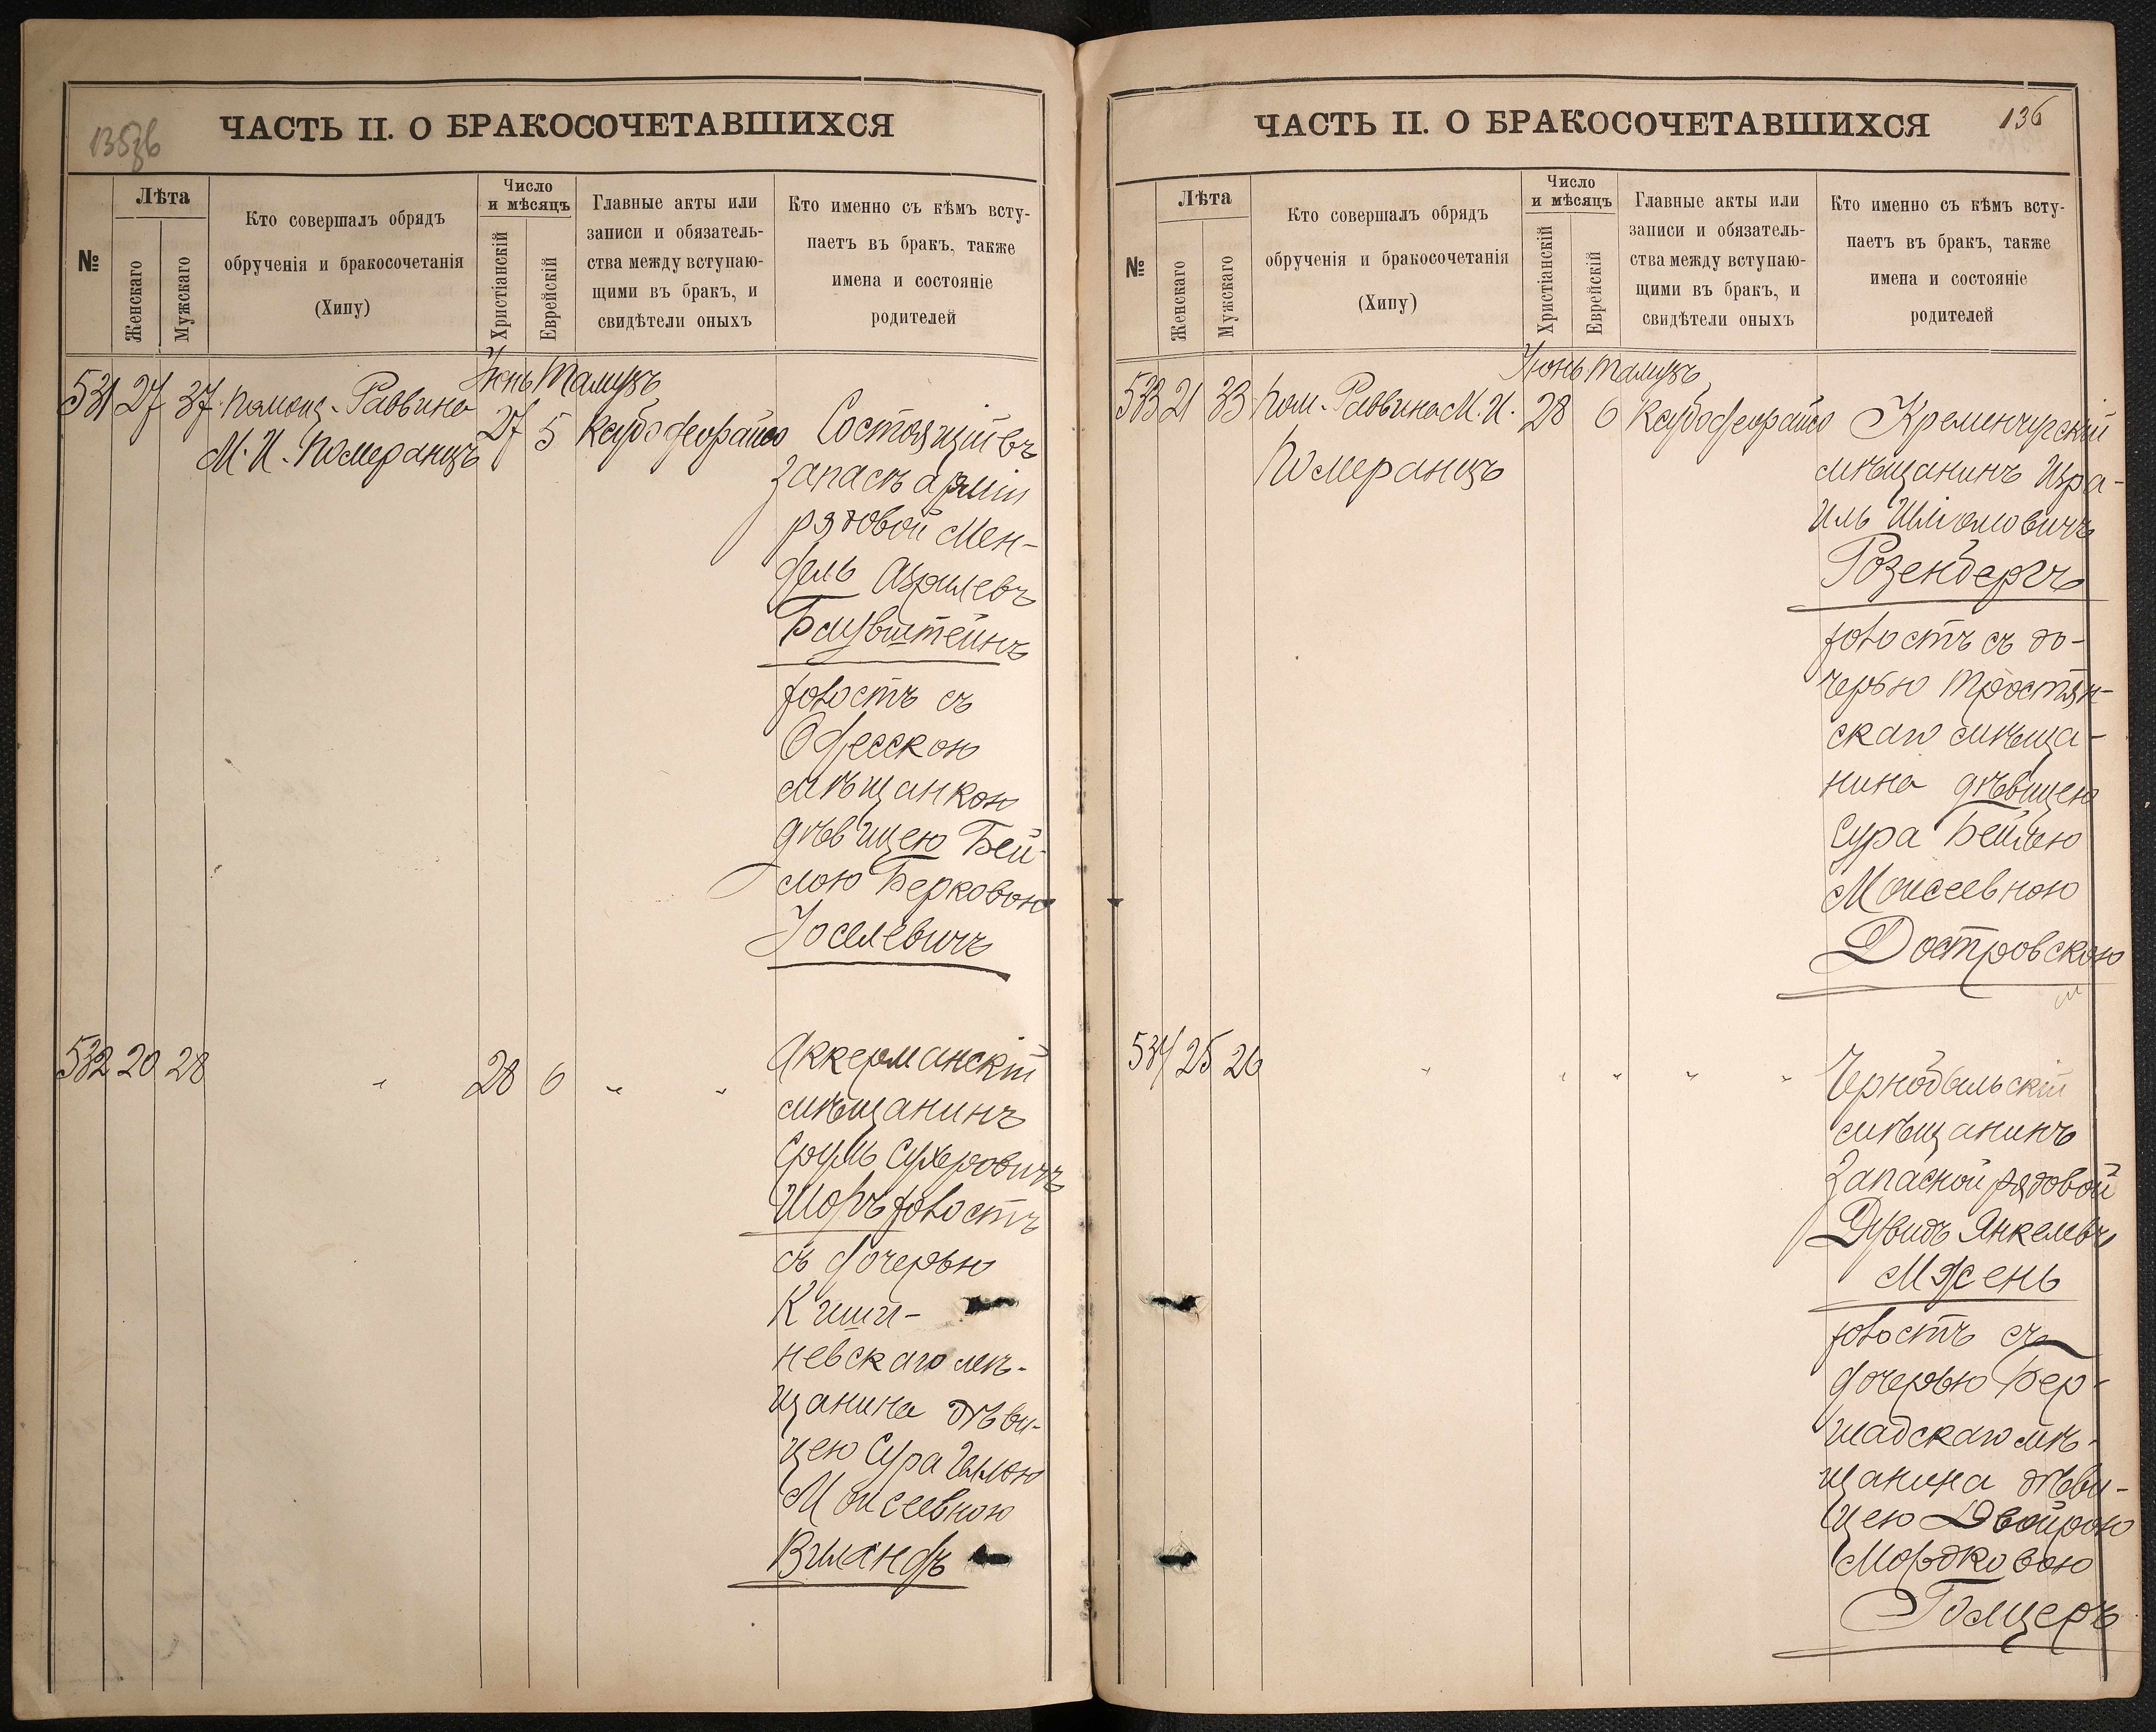 135об
ЧАСТЬ II. О БРАКОСОЧЕТАВШИХСЯ
№
Лѣта
Женскаго
Мужскаго
Кто совершалъ обрядъ
обрученія и бракосочетанія
(Хипу)
Число
и мѣсяцъ
Христіанскій
Еврейскій
Главные акты или
записи и обязатель-
ства между вступаю-
щими въ бракъ, и
свидѣтели оныхъ
Кто именно съ кѣмъ всту-
паетъ въ бракъ, также
имена и состояніе
родителей
Іюнь Тамузъ
531 27 37 Помощ. Раввина
М. И. Померанцъ
27 5
Состоящій въ
запасѣ арміи
рядовой Мен-
дель Азрилевъ
Блувштейнъ
холостъ съ
Одесскою
мѣщанкою
дѣвицею Бей-
лою Берковою
Іоселевичъ
532 20 28 " 28 6 " "
Аккерманскій
мѣщанинъ
Сруль Сухеровичъ
Шоръ холостъ
съ дочерью
Киши-
невскаго мѣ-
щанина дѣви-
цею Сура
Моисеевною
Виландъ
136
ЧАСТЬ II. О БРАКОСОЧЕТАВШИХСЯ
№
Лѣта
Женскаго
Мужскаго
Кто совершалъ обрядъ
обрученія и бракосочетанія
(Хипу)
Число
и мѣсяцъ
Христіанскій
Еврейскій
Главные акты или
записи и обязатель-
ства между вступаю-
щими въ бракъ, и
свидѣтели оныхъ
Кто именно съ кѣмъ всту-
паетъ въ бракъ, также
имена и состояніе
родителей
Іюнь Тамузъ
533 21 33 Пом. Раввина М. И.
Померанцъ
28 6
Кременчугскій
мѣщанинъ Изра-
иль Шліомовичъ
Розенбергъ
холостъ съ до-
черью Тростян-
скаго мѣща-
нина дѣвицею
Сура Бейлею
Моисеевною
Достровскою
534 25 26 " " " " "
Чернобыльскій
мѣщанинъ
Запасной рядовой
Дувидъ Янкелевъ
Мжень
холостъ съ
дочерью Бер-
шадскаго мѣ-
щанина дѣви-
цею Двойрою
Мордковою
Голцеръ